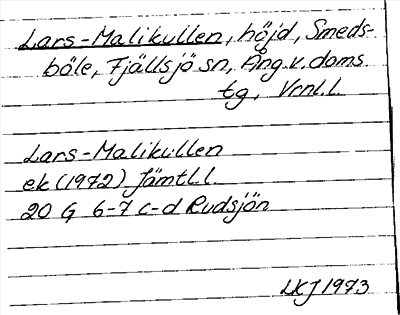 Lars-Malikullen, höjd, Smeds-
böle, Fjällsjö sn, Ång.v.doms.
tg, Vrnl.l.
Lars-Malikullen
ek (1972) Jämtl.l.
20 G 6-7 c-d Rudsjön
LKJ 1973